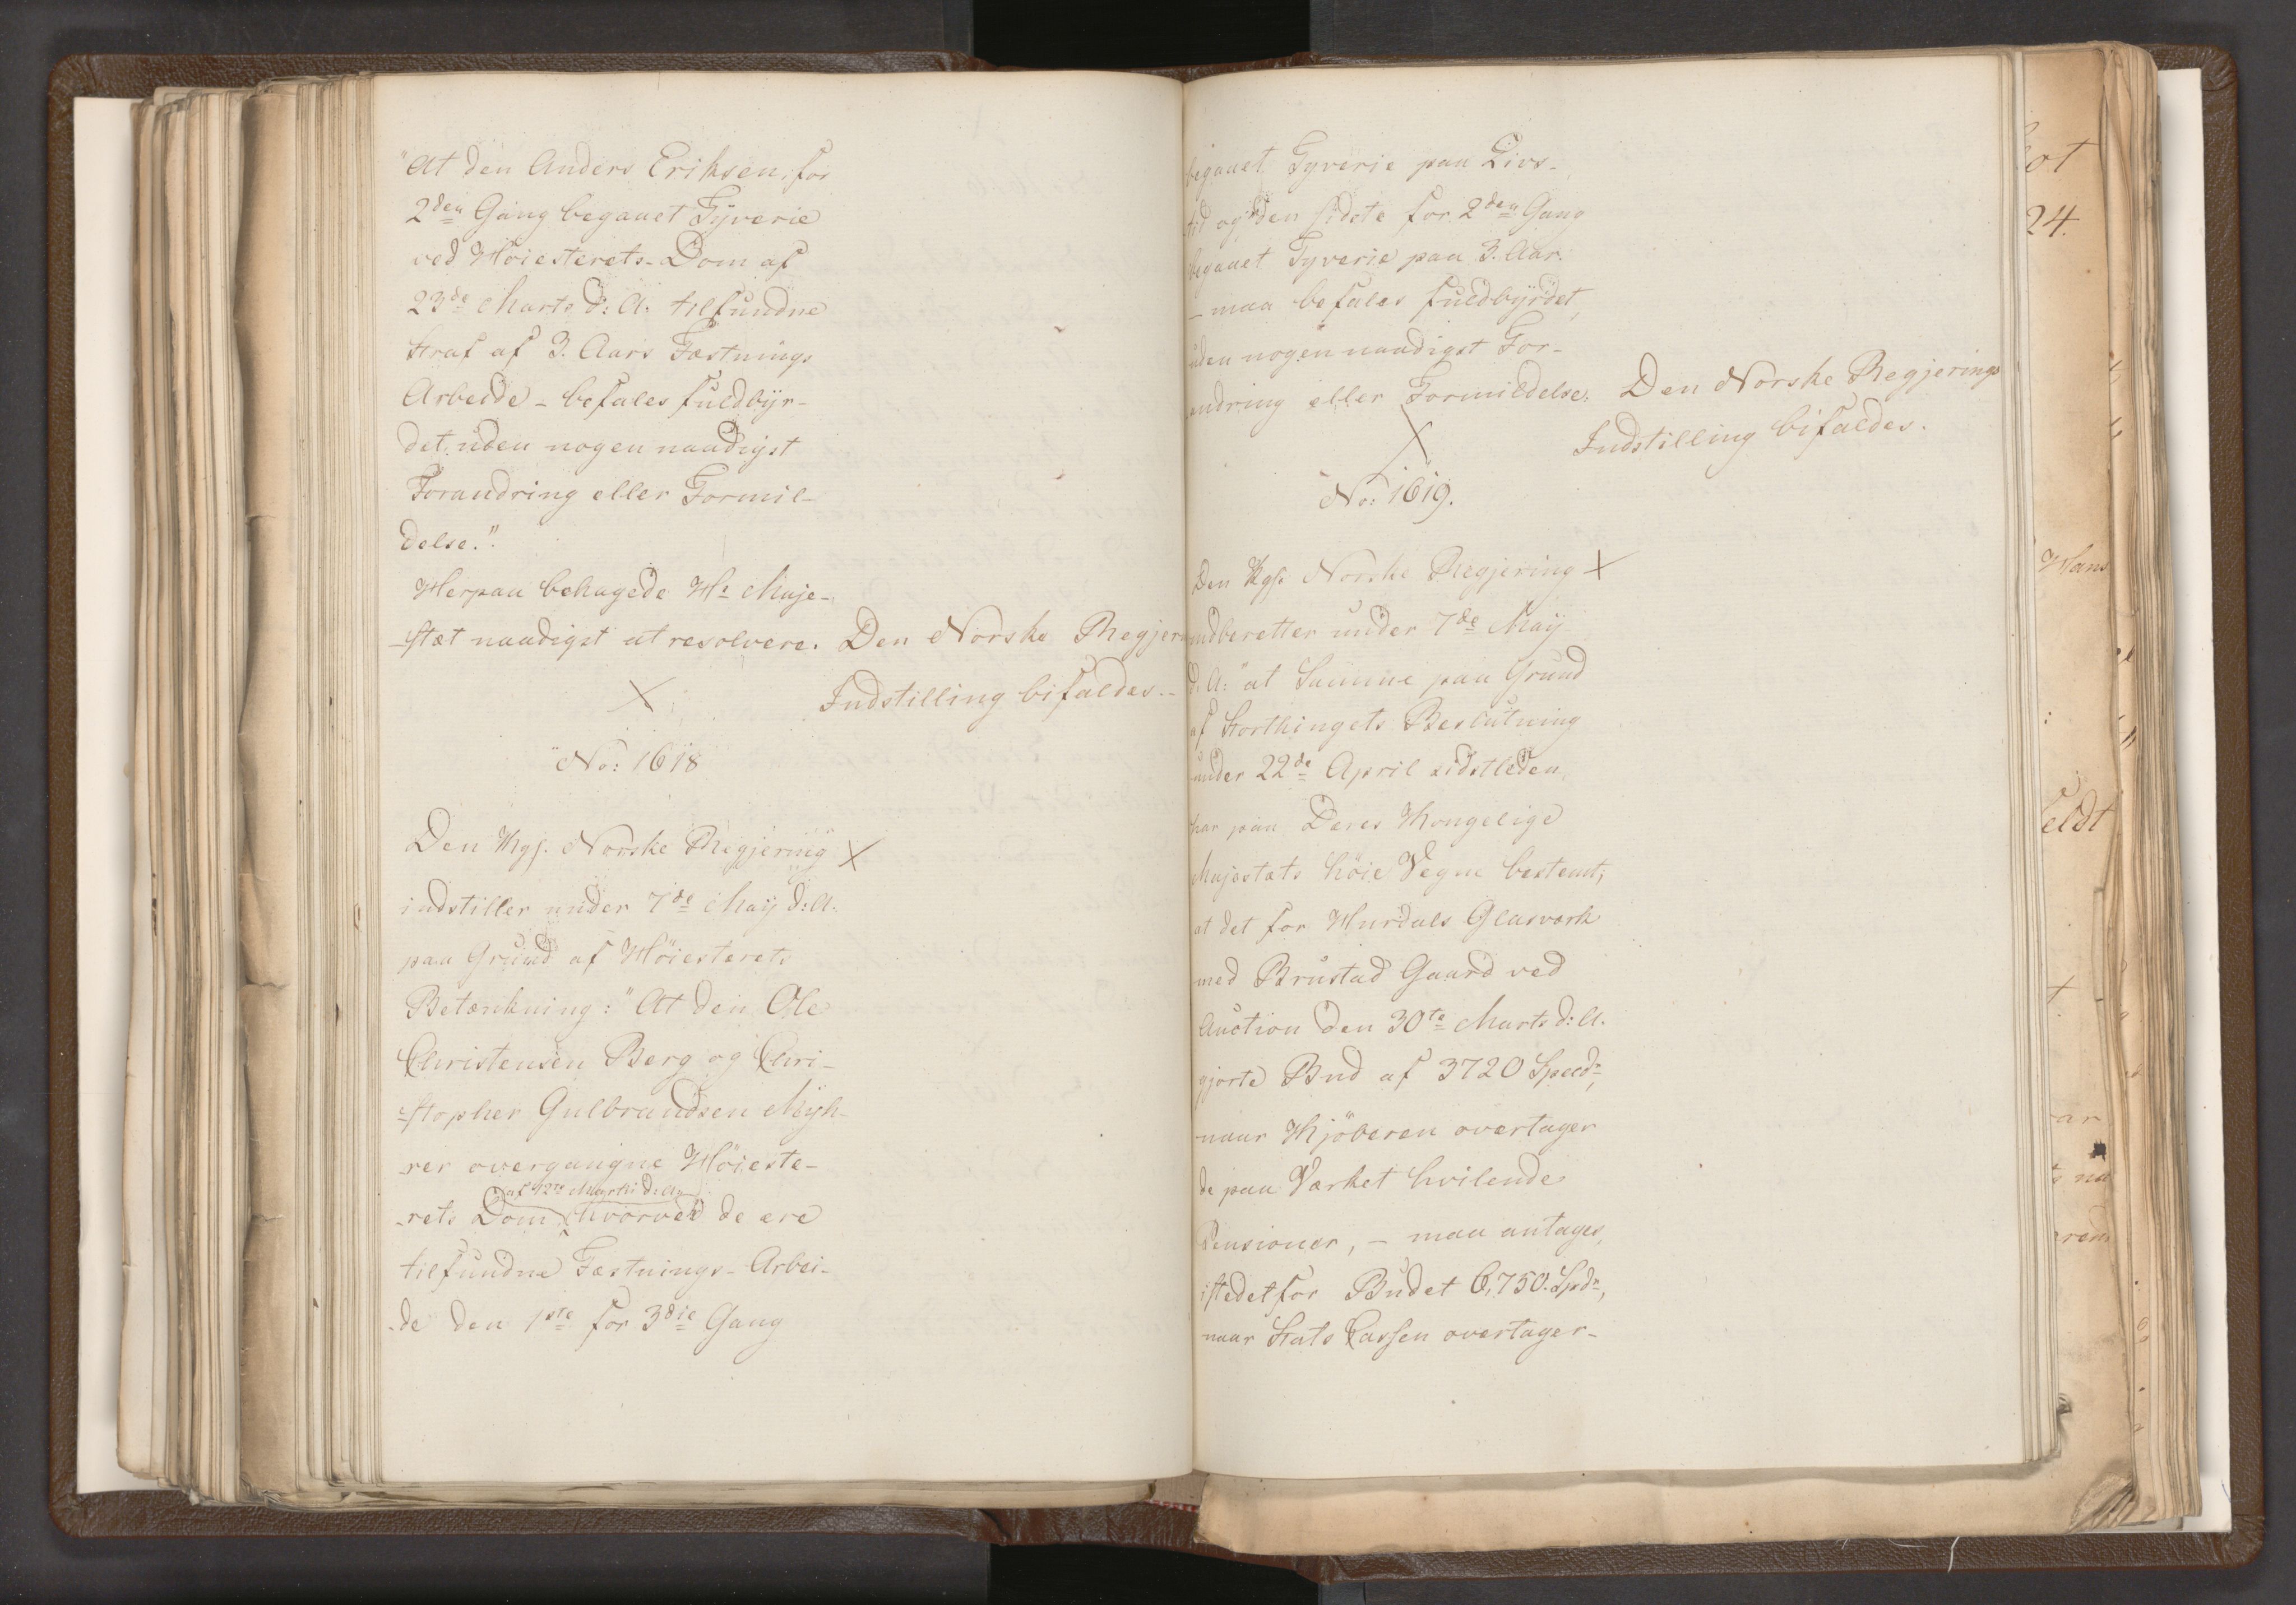 "At den Anders Eriksen, for
2den Gang begaaet Tÿverie
ved Höiesterets-Dom af
23de Marts d: A. tilfundne
Straf af 3. Aars Fæstnings
Arbeide - befales fuldbÿr-
det uden nogen naadigst
Forandring eller Formil-
delse.".
Herpaa behagede Hs Maje-
-stæt naadigst at resolvere. Den Norske Regjer
Indstilling bifaldes.-
No: 1618
Den Kgl. Norske Regjering X
indstiller under 7de Maÿ d: A.
paa Grund af Höiesterets
Betænkning: "At den Ole
Christensen Berg og Chri-
-stopher Gulbrandsen Mÿh-
-rer overgangne Höieste-
af 12te Martii d: A.
-rets Dom, hvorved de ere
tilfundne Fæstnings-Arbei-
-de den 1ste for 3die Gang
begaaet Tyverie paa Livs-
tid og den sidste for 2den Gang
begaaet Tyverie paa 3. Aar.
- maa befales fuldbÿrdet,
uden nogen naadigst For-
andring eller Formildelse. Den Norske Regjerings
Indstilling bifaldes.
No: 1619.
Den Kgl. Norske Regjering X
indberetter under 7de Maÿ
d: A: "at Samme paa Grund
af Storthingets Beslutning
under 22de April sidstleden,
har paa Deres Kongelige
Majestæts höie Vegne bestemt,
at det for Hurdals Glasværk
med Brustad Gaard ved
Auction den 30te Marts d: A.
gjorte Bud af 3720 Specdr,
naar Kjöberen overtager
de paa Værket hvilende
Pensioner, - maa antages,
istedetfor Budet 6,750. Spdr,
naar Stats Cassen overtager-
ot
24.
Hans
feldt